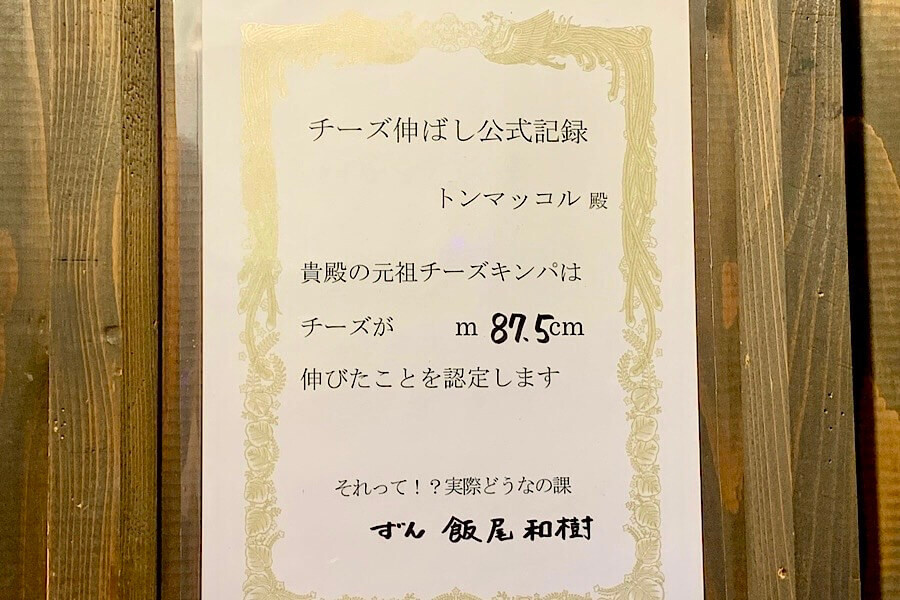 チーズ伸ばし公式記録
トンマッコル 殿
貴殿の元祖チーズキンパは
チーズが m 87.5cm
伸びたことを認定します
それって！？実際どうなの課
ずん 飯尾和樹